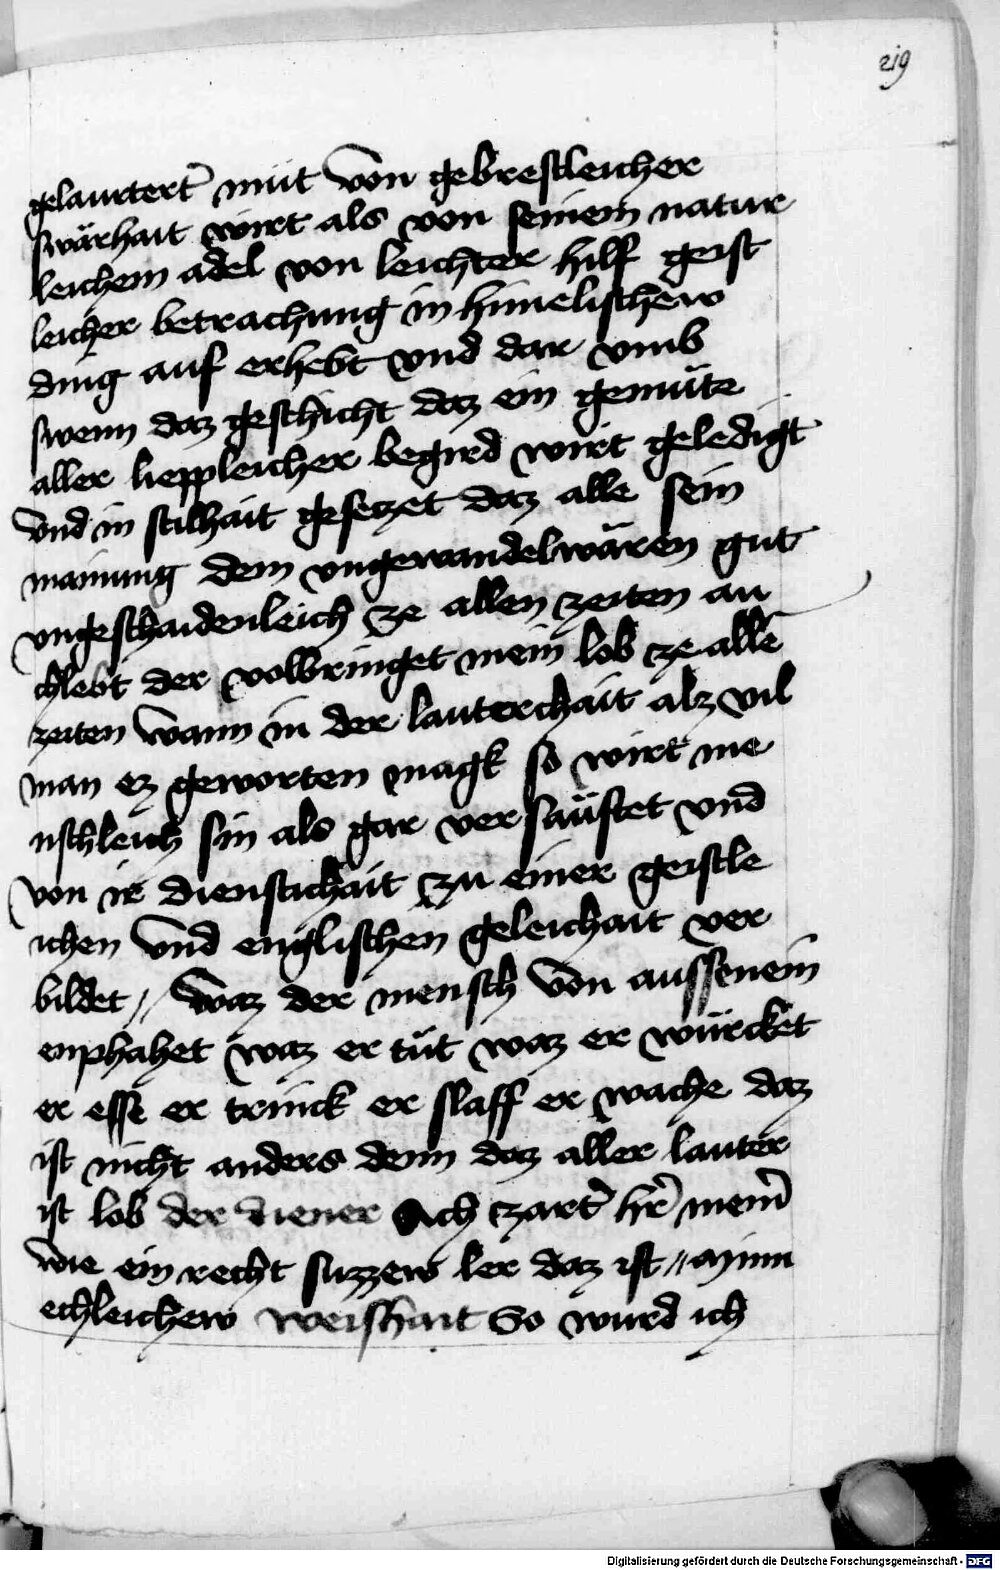 219
gelaurtert̄ müt von gebrestleicher
swärhait wirt als von seinem natur
leichem adel von leichter hilf geist
leicher betrachung in himelischew
ding auf erhebt vnd dar vmb
swenn daz geschicht daz ein gemüte
aller lieppleicher begird wirt geledigt
vnd in stilhait gesetzet daz alle sein
mainung dem vngewandelwären gut
vngeschaidenleich ze allen zeiten an
chlebt der volbringet mein lob ze alle
zeiten wann in der lauterchait alz vil
man ez geworten magk so wirt me
nschleich sin als gar versäuftet vnd
von ir dienstichait zu einer geistle
ichen vnd englischen geleichait ver
bildet // waz der mensch von aussenein
enphahet waz er tüt waz er würcket
er esse er trinck er slaff er wache daz
ist nicht anders denn daz aller lauter
ist lob der diener Ach zart̄ hr̄ mein̄
wie ein recht suzzew ler daz ist // Minn
echleichew weishait So wurd ich
Digitalisierung gefördert durch die Deutsche Forschungsgemeinschaft - DFG